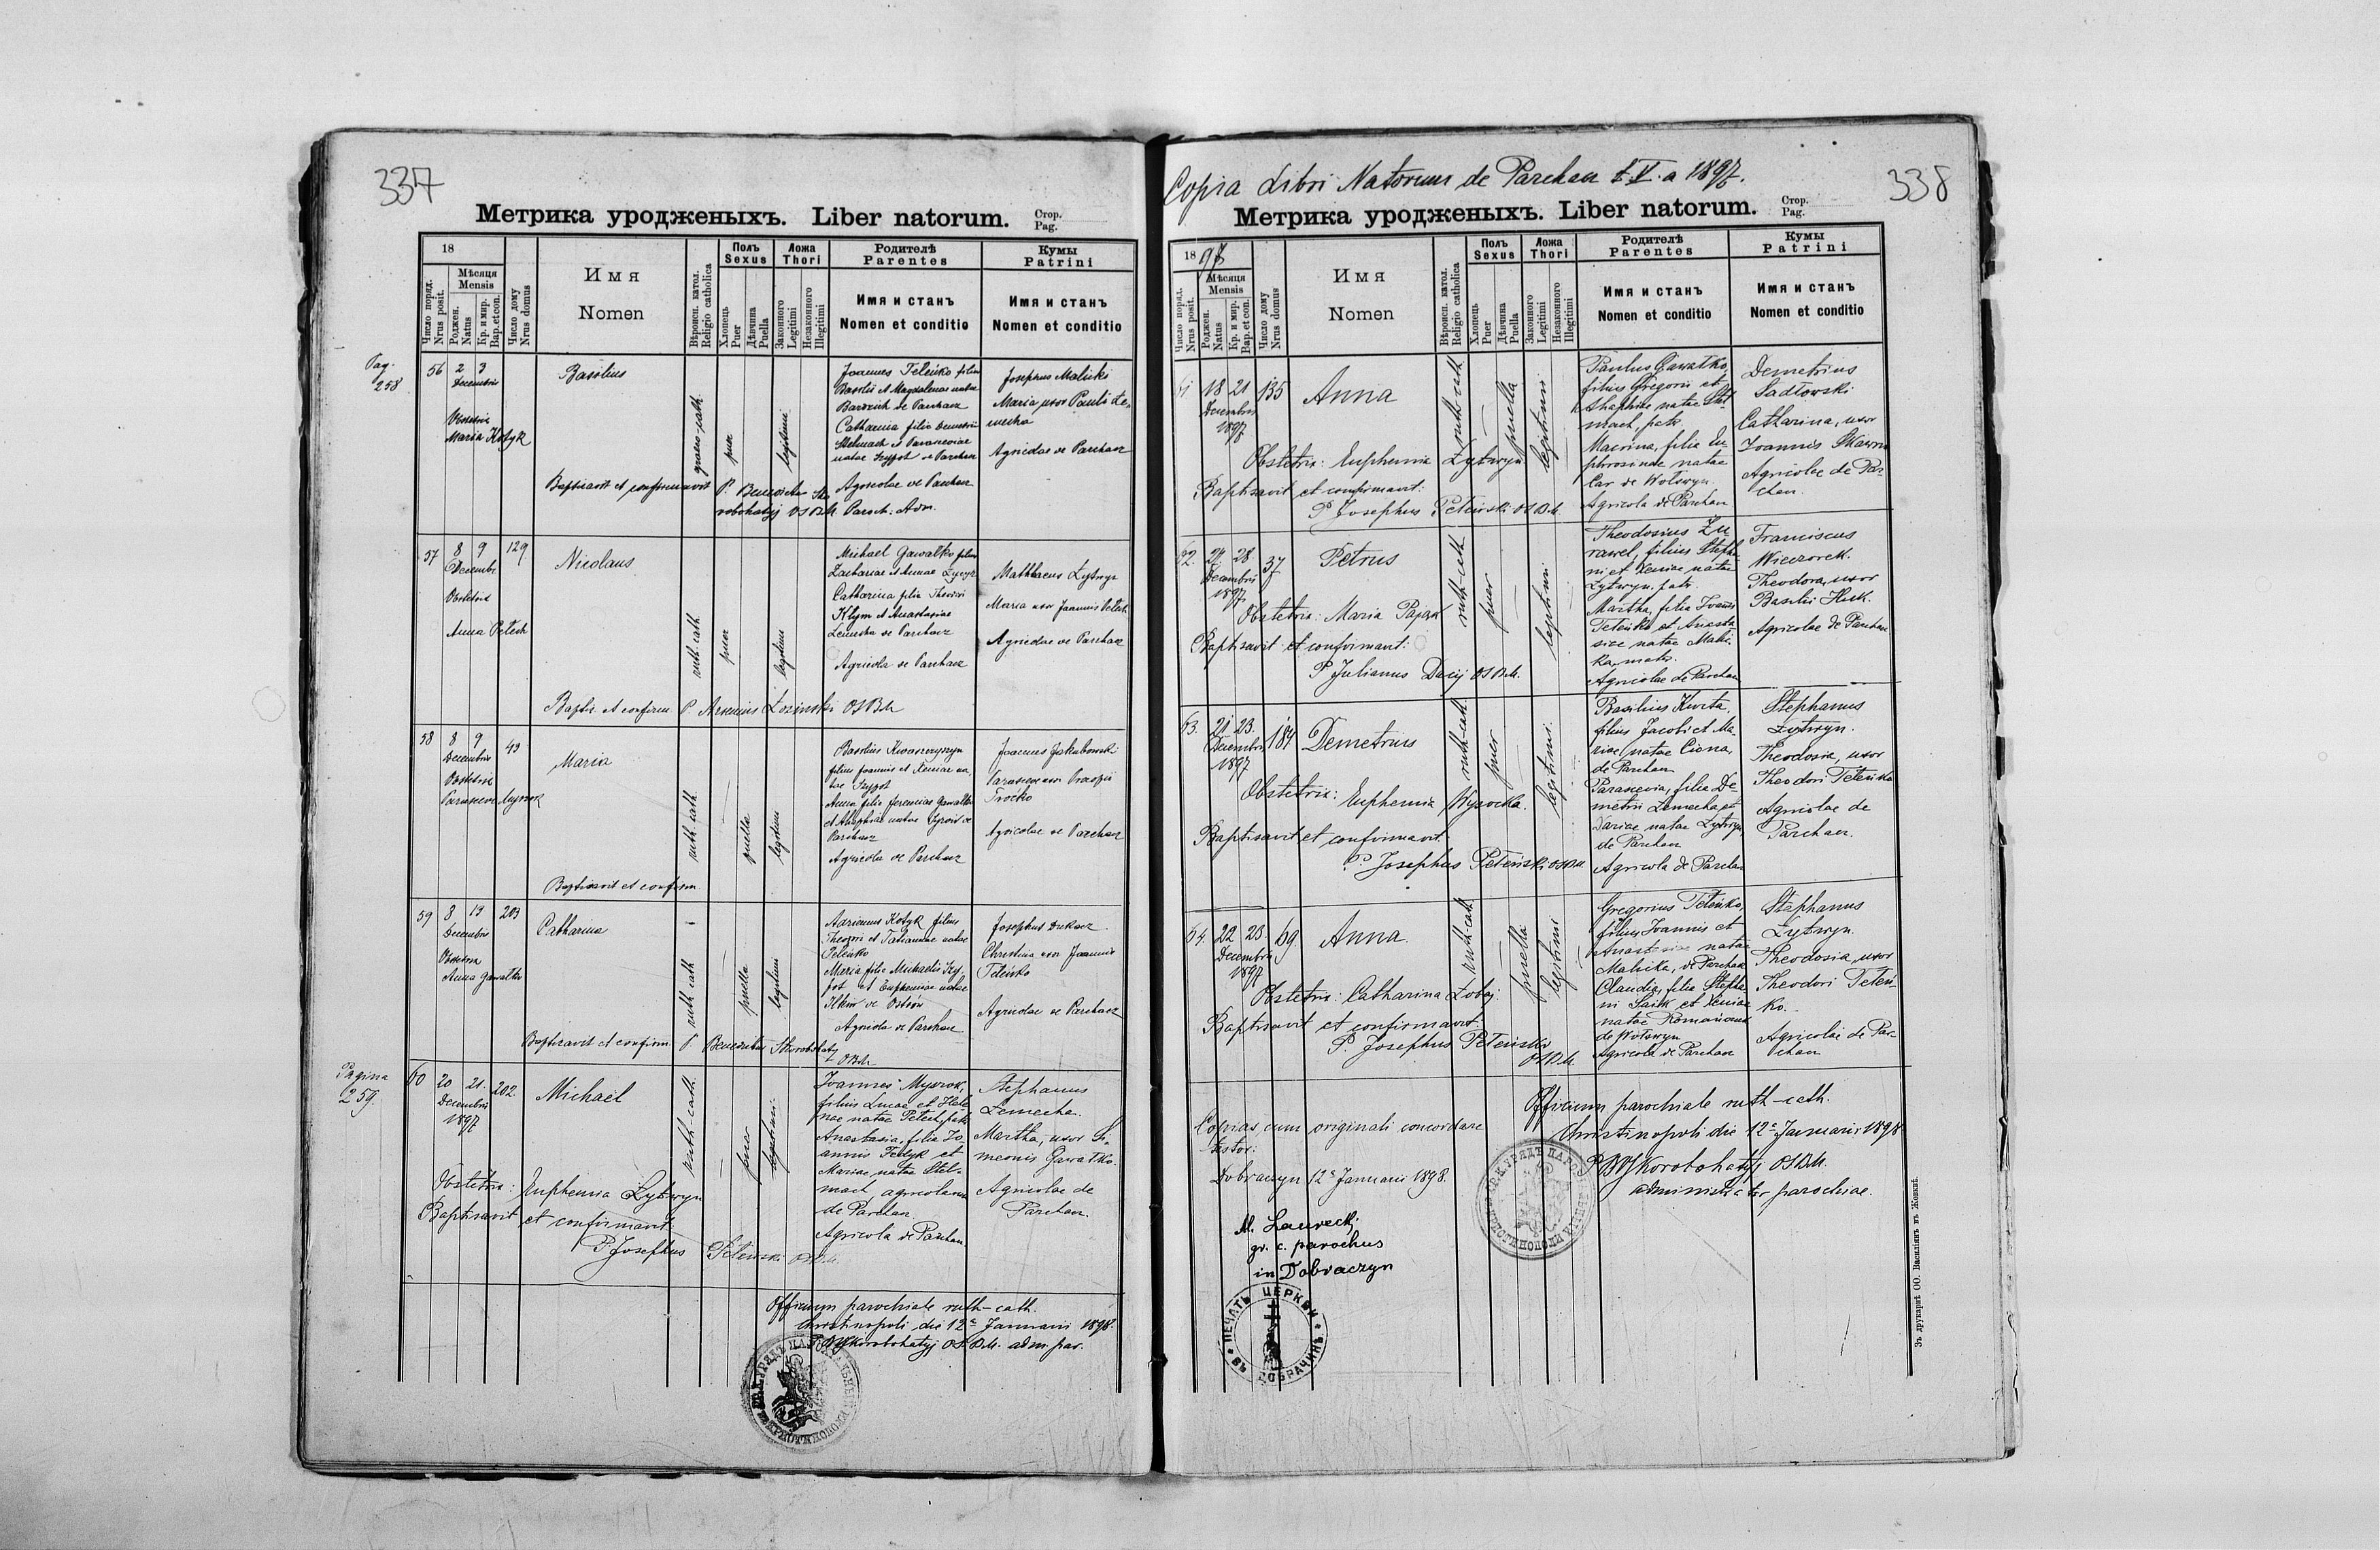 337
Метрика уродженыхъ. Liber natorum.
Стор.
Pag.
18
Число поряд.
Nrus posit.
Мѣсяця
Mensis
Роджен.
Natus
Кр. и мир.
Bap. et con.
Число дому
Nrus domus
Имя
Nomen
Вѣроисп. катол.
Religio catholica
Полъ
Sexus
Хлопець
Puer
Дѣвчина
Puella
Ложа
Thori
Законного
Legitimi
Незаконного
Illegitimi
Родителѣ
Parentes
Имя и станъ
Nomen et conditio
Кумы
Patrini
Имя и станъ
Nomen et conditio
Pag.
258
56 2 3
Decembris
Basilius
Obstetrix
Maria Kotyk
graeco-cath.
puer
legitimi
Joannes Teleńko filius
Basilii et Magdalenae natae
de Parchacz
Catharina filia Demetrii
Stelmach et Parasceviae
natae Szypot de Parchacz
Agricolae de Parchacz
Josephus Malicki
Maria uxor Pauli Le-
mecha
Agricolae de Parchacz
Baptisavit et confirmavit P. Benedictus Sko
robohatyj OSBM. Paroch. Adm.
57 8 9 129
Decembr.
Nicolaus
Obstetrix
Anna Petech
ruth. cath.
puer
legitimi
Michael Gawałko filius
Zachariae et Annae Łytwyn
Catharina filia Theodori
Klym et Anastasiae
Lemecha de Parchacz
Agricola de Parchacz
Matthaeus Łytwyn
Maria uxor Joannis Petech
Agricolae de Parchacz
Baptis. et confirm P. Arsenius Łozinski OSBM
58 8 9 43
Decembris
Maria
Obstetrix
Parascevia Myszok
ruth. cath.
puella
legitimi
Basilius Kwaszczyszyn
filius Joannis et Xeniae na-
tae Szypot
Anna filia Jeremiae Gawałko
et Ahaphiae natae
Parchacz
Agricola de Parchacz
Joannes Jakubowski
Parascevia uxor
Troćko
Agricolae de Parchacz
Baptisavit et confirm.
59 8 13 203
Decembris
Catharina
Obstetrix
Anna Gawałko
ruth. cath
puella
legitimi
Adrianus Kotyk filius
Theodori et Tatiannae natae
Teleńko
Maria filia Michaelis Szy-
pot et Euphemiae natae
Ilkiw de Ostrów
Agricola de Parchacz
Josephus Dukacz
Christina uxor Joannis
Teleńko
Agricolae de Parchacz
Baptisavit et confirm P. Benedictus Skorobohatyj
OSBM
Pagina
259.
60 20 21. 202.
Decembris
1897
Michaël
ruth-cath.
puer
legitimi
Joannes Myszok,
filius Lucae et Hele-
nae natae Petech, patr.
Anastasia, filia Jo-
annis Fedyk et
Mariae natae Stel-
mach, agricolarum
de Parchacz
Agricola de Parchacz
Stephanus
Lemecha.
Martha, uxor Si-
meonis Gawałko.
Agricolae de
Parchacz.
Obstetrix: Euphemia Łytwyn
Baptisavit et confirmavit:
P. Josephus Peteński OSBM.
Officium parochiale ruth-cath.
Christinopoli die 12a Januarii 1898.
P. B. Skorobohatyj OSBM. adm. par.
Copia Libri Natorum de Parchacz t. V. a 1897.
338
Метрика уродженыхъ. Liber natorum.
Стор.
Pag.
1897
Число поряд.
Nrus posit.
Мѣсяця
Mensis
Роджен.
Natus
Кр. и мир.
Bap. et con.
Число дому
Nrus domus
Имя
Nomen
Вѣроисп. катол.
Religio catholica
Полъ
Sexus
Хлопець
Puer
Дѣвчина
Puella
Ложа
Thori
Законного
Legitimi
Незаконного
Illegitimi
Родителѣ
Parentes
Имя и станъ
Nomen et conditio
Кумы
Patrini
Имя и станъ
Nomen et conditio
61 18 21 135
Decembris
1897
Anna
ruth-cath
puella
legitimi
Paulus Gawałko,
filius Gregorii et
Ahaphiae natae Stel-
mach, patr.
Macrina, filia Eu-
phrosinae natae
Car de Wolswyn.
Agricola de Parchacz
Demetrius
Sadłowski
Catharina, uxor
Joannis
Agricolae de Par-
chacz.
Obstetrix: Euphemia Łytwyn
Baptisavit et confirmavit:
P. Josephus Peteński OSBM.
62. 24 28. 37
Decembris
1897
Petrus
ruth-cath
puer
legitimi
Theodosius Żu-
rawel, filius Stepha-
ni et Xeniae natae
Łytwyn, patr.
Martha, filia Joannis
Teteńko et Anasta-
siae natae Mali-
ka, matr.
Agricolae de Parchacz
Franciscus
Wieczorek.
Theodora, uxor
Basilii Huk.
Agricolae de Parchacz
Obstetrix: Maria Pająk
Baptisavit et confirmavit:
P. Julianus Dacij OSBM.
63. 21. 23. 184
Decembris
1897
Demetrius
ruth-cath
puer
legitimi
Basilius Kwita,
filius Jacobi et Ma-
riae natae Ciona,
de Parchacz
Parascevia, filia De-
metrii Lemecha et
Dariae natae Łytwyn,
de Parchacz
Agricola de Parchacz
Stephanus
Łytwyn.
Theodosia, uxor
Theodori Teteńko
Agricolae de
Parchacz.
Obstetrix: Euphemia Wysocka.
Baptisavit et confirmavit.
P. Josephus Peteński OSBM.
64. 22 23. 69
Decembris
1897
Anna.
ruth-cath
puella
legitimi
Gregorius Teteńko,
filius Joannis et
Anastasiae natae
Malicka, de Parchacz
Claudia, filia Stepha-
ni Saik et Xeniae
natae
de Wolswyn
Agricola de Parchacz
Stephanus
Łytwyn.
Theodosia, uxor
Theodori Teteń-
ko.
Agricolae de Par-
chacz
Obstetrix: Catharina Łobaj.
Baptisavit et confirmavit:
P. Josephus Peteński
OSBM.
Copias cum originali concordare
testor:
Dobraczyn 12a Januarii 1898.
M. Laureck,
gr. c. parochus
in Dobraczyn
ПЕЧАТЬ ЦЕРКВИ
ВЪ ДОБРАЧИНѢ
Officium parochiale ruth-cath.
Christinopoli die 12a Januarii 1898
P. B. Skorobohatyj OSBM.
administrator parochiae.
Зъ друкарнѣ ОО. Василіянъ въ Жовквѣ.